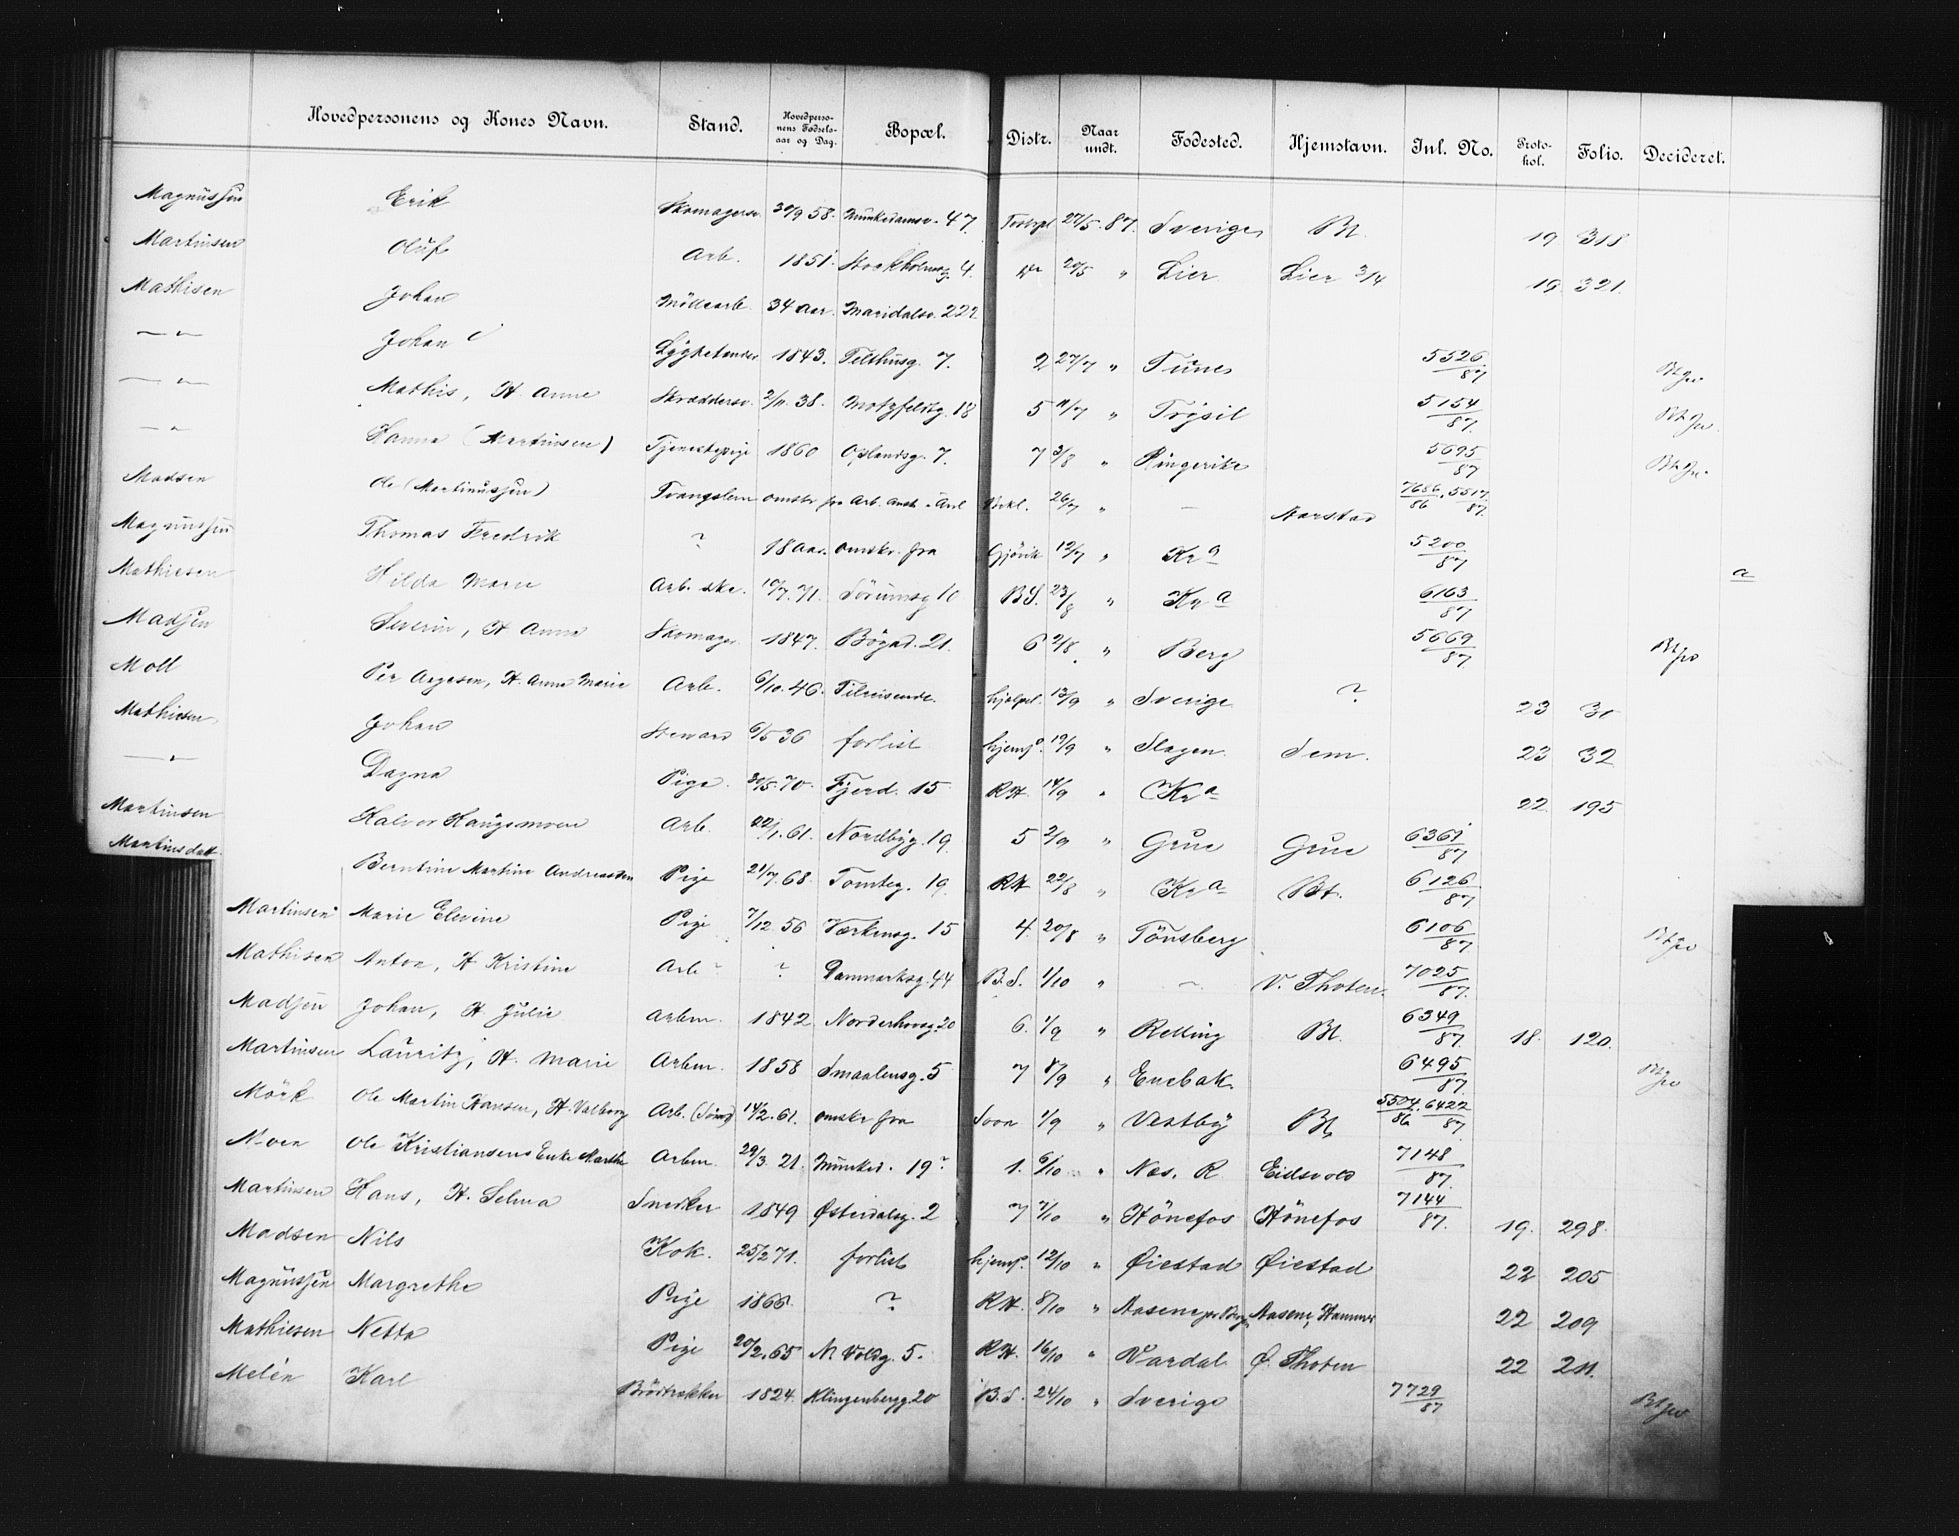 Hovedpersonens og Kones Navn. Stand. Hovedpersonens Fødselsaar og Dag. Bopæl. Distr. Naar undt. Fødested. Hjemstavn. Inl. No. Protokol. Folio. Decideret.
Magnussen Erik Skomagersv. 30/9 58. Munkedamsv. 47. 27/5. 87. Sverige Bt. 19 318
Martinsen Oluf Arb. 1851. Stockholmsg. 4. 20/5 " Lier Lier 3/4 19. 321.
Mathisen Johan Mödearb. 34 aar. Maridalsv. 222
— " — Johan 1843. Telthusg. 7. 2 27/7 " Tunes 5526/87
— " — Mathis, H. Anne Skræddersv. 2/11. 38. Motzfeldtg. 18 5 11/7 " Trysil 5154/87.
— " — Hanna (Martinsen) Tjenestepige 1860 Oplandsg. 7. 7 3/8 " Ringerike 5695/87
Madsen Ole (Martinussen) Tvangslem omskr fra Arb. Anst. 26/7 " — Aarstad 7686/86, 5517/87.
Magnussen Thomas Fredrik ? 18 aar. omskr. fra Gjövik 12/7 " Kra 5200/87
Mathiesen Hilda Marie Arb. ske. 10/7. 71. Sörumsg 10 B.S. 23/8 " Kra 6163/87 a
Madsen Severin, H Anna Skomager 1847. Bögad. 21. 6 2/8. " Berg 5669/87
Moll Per Aagesen, H. Anne Marie Arb. 6/10. 46. Tilreisende. hjælpel. 13/9 " Sverige ? 23 31
Mathiesen Johan Steward 6/5 36 forlist hjemf. 19/9 " Slagen Sem. 23 32
— " — Dagna Pige. 30/5. 70. Fjerd. 15 R.H. 14/9 " Kra 22. 195
Martinsen Halvor Haugsmoen Arb. 22/1. 61. Nordbyg. 19. 5 2/9 " Grue Grue 6361/87
Martinsdatt. Berntine Martine Andreasdtn Pige 21/7. 68. Tomteg. 19. R.H. 22/8 " Kra Bt. 6126/87
Martinsen Marie Elevine Pige 7/12. 56 Værkensg. 15 4. 20/8 " Tönsberg 6106/87
Mathisen Anton, H Kristine Arb ? ? Danmarksg. 44 B.S. 1/10 " — V. Thoten. 7025/87.
Madsen Johan, H Julie Arbm. 1842 Norderhovsg. 20 6. 1/9 " Relling Bt. 6349/87. 18. 120.
Martinsen Lauritz, H. Marie Arbm. 1858 Smaalensg. 5 7 8/9 " Enebak. 6495/87.
Mörk Ole Martin Hansen, H. Valborg Arb. 14/2. 61. omskr fra Soon 1/9 " Vestby Bt, 5504/86. 6422/87.
Moen Ole Kristiansens Enke Marthe Arbm. 29/3. 21. Munked. 19? 1. 6/10 " Nes. R. Eidsvold 7148/87.
Martinsen Hans, H. Selma Snedker 1849 Østerdalsg. 2 7 7/10 " Hönefos Hönefos 7144/87. 19. 298.
Madsen Nils Kok. 25/2 71. forlist hjemf. 12/10 " Øiestad Øiestad 22 205
Magnussen Margrethe Pige 1866. ? R.H. 8/10 " Aasene Aasene, Hammer 22 209
Mathiesen Netta Pige 20/2. 65 N Voldg. 5. R.H. 16/10 " Vardal Ø. Thoten 22 211.
Melén Karl 1824. Klingenbergg. 20 B.S. 24/10 " Sverige 7729/87